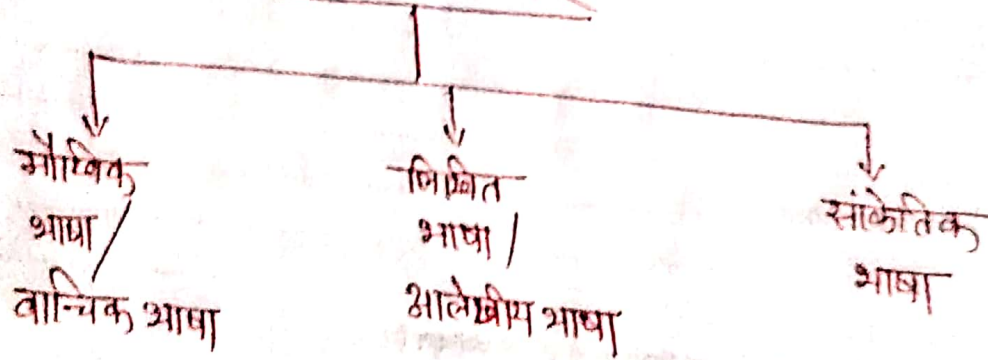 मौखिक
भाषा /
वाचिक भाषा
लिखित
भाषा /
आलेखीय भाषा
सांकेतिक
भाषा